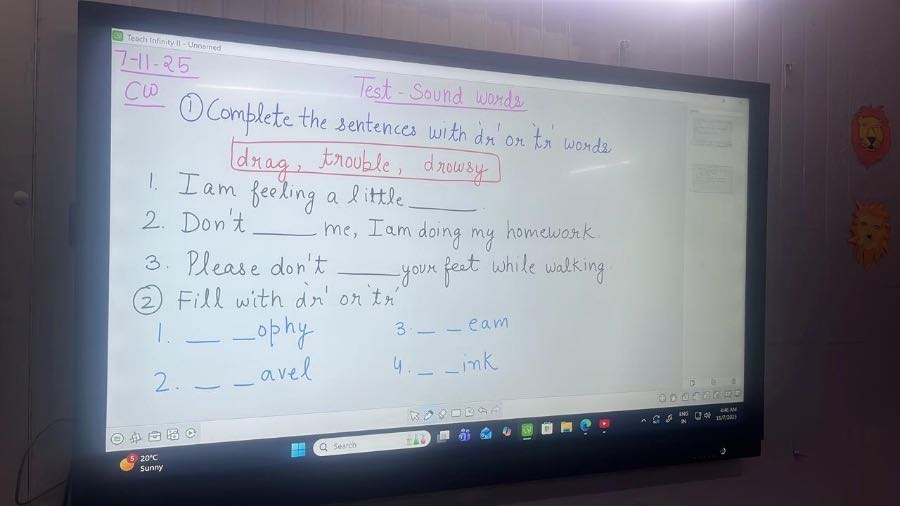 Teach Infinity II - Unnamed
7-11-25
CW
Test - Sound words
① Complete the sentences with 'dr' or 'tr' words
drag, trouble, drowsy
1. I am feeling a little ______.
2. Don't _____ me, I am doing my homework.
3. Please don't _____ your feet while walking
② Fill with 'dr' or 'tr'
1. _ _ophy
3. _ _eam
2. _ _avel
4. _ _ink
5
20°C
Sunny
Search
ENG
IN
4:46 AM
11/7/2025